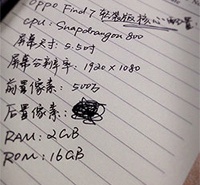 oppo Find 7 轻装版核心配置
cpu: Snapdrangon 800
屏幕尺寸: 5.5吋
屏幕分辨率: 1920 x 1080
前置像素: 500万
后置像素:
RAM: 2GB
ROM: 16GB